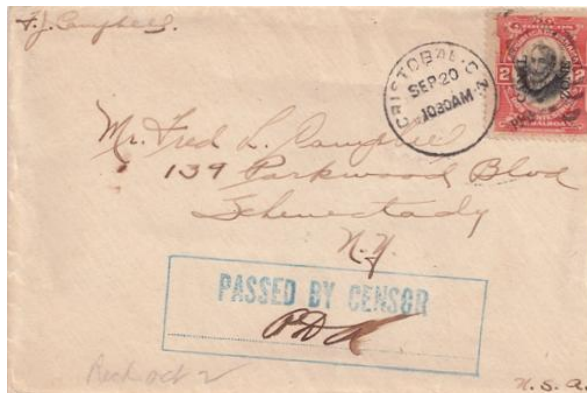 F. J. Campbell.
CRISTOBAL. C.Z.
SEP 20
1030AM
2
CANAL
ZONE
Mr. Fred L. Campbell
139 Parkwood Blvd
Schenectady
N.Y.
PASSED BY CENSOR
Rec'd Oct 2
U.S.A.